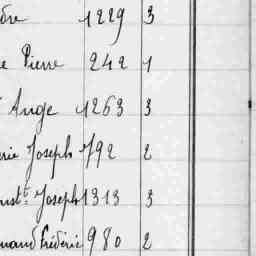 dre 1229 3
e Pierre 242 1
Ange 1263 3
rie Joseph 792 2
nst.t Joseph 1313 3
nand Frédéric 980 2